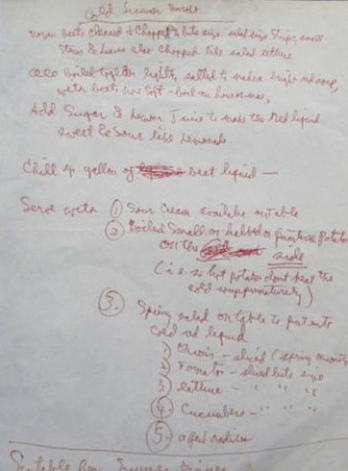 Cold Summer Borscht
beets cleaned & chopped bite size salad size strips, small
stems & leaves also chopped like salad lettuce
all boiled together lightly salted to make a bright red soup,
with beets soft - boil an hour
Add Sugar & Lemon Juice to make the red liquid
sweet & sour like Lemonade
Chill 4 gallon of beet liquid —
Serve with (1) Sour Cream available on table
(2) Boiled small or halved potato
on the side
(i.e. so hot potatoes dont heat the
cold soup prematurely)
(3.) Spring salad on table to put into
cold red liquid
1) Onion - sliced (spring onion)
2) Tomato - sliced bite size
3) Lettuce - " " "
(4.) Cucumbers - " " "
(5.) a few radishes
Suitable for Summer Dinner